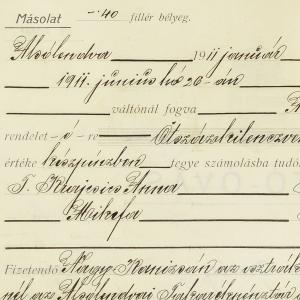 Másolat -·40 fillér bélyeg.
Alsólendva 1911 január
1911. junius hó 26-án
váltónál fogva
rendelet-é-re Ötszázkilenczven
értéke készpénzben s tegye számolásba tudó
T. Krajcsics Anna
Mikefa
Fizetendő Nagy Kanizsán az osztrák
nél az Alsólendvai Takarékpénztár